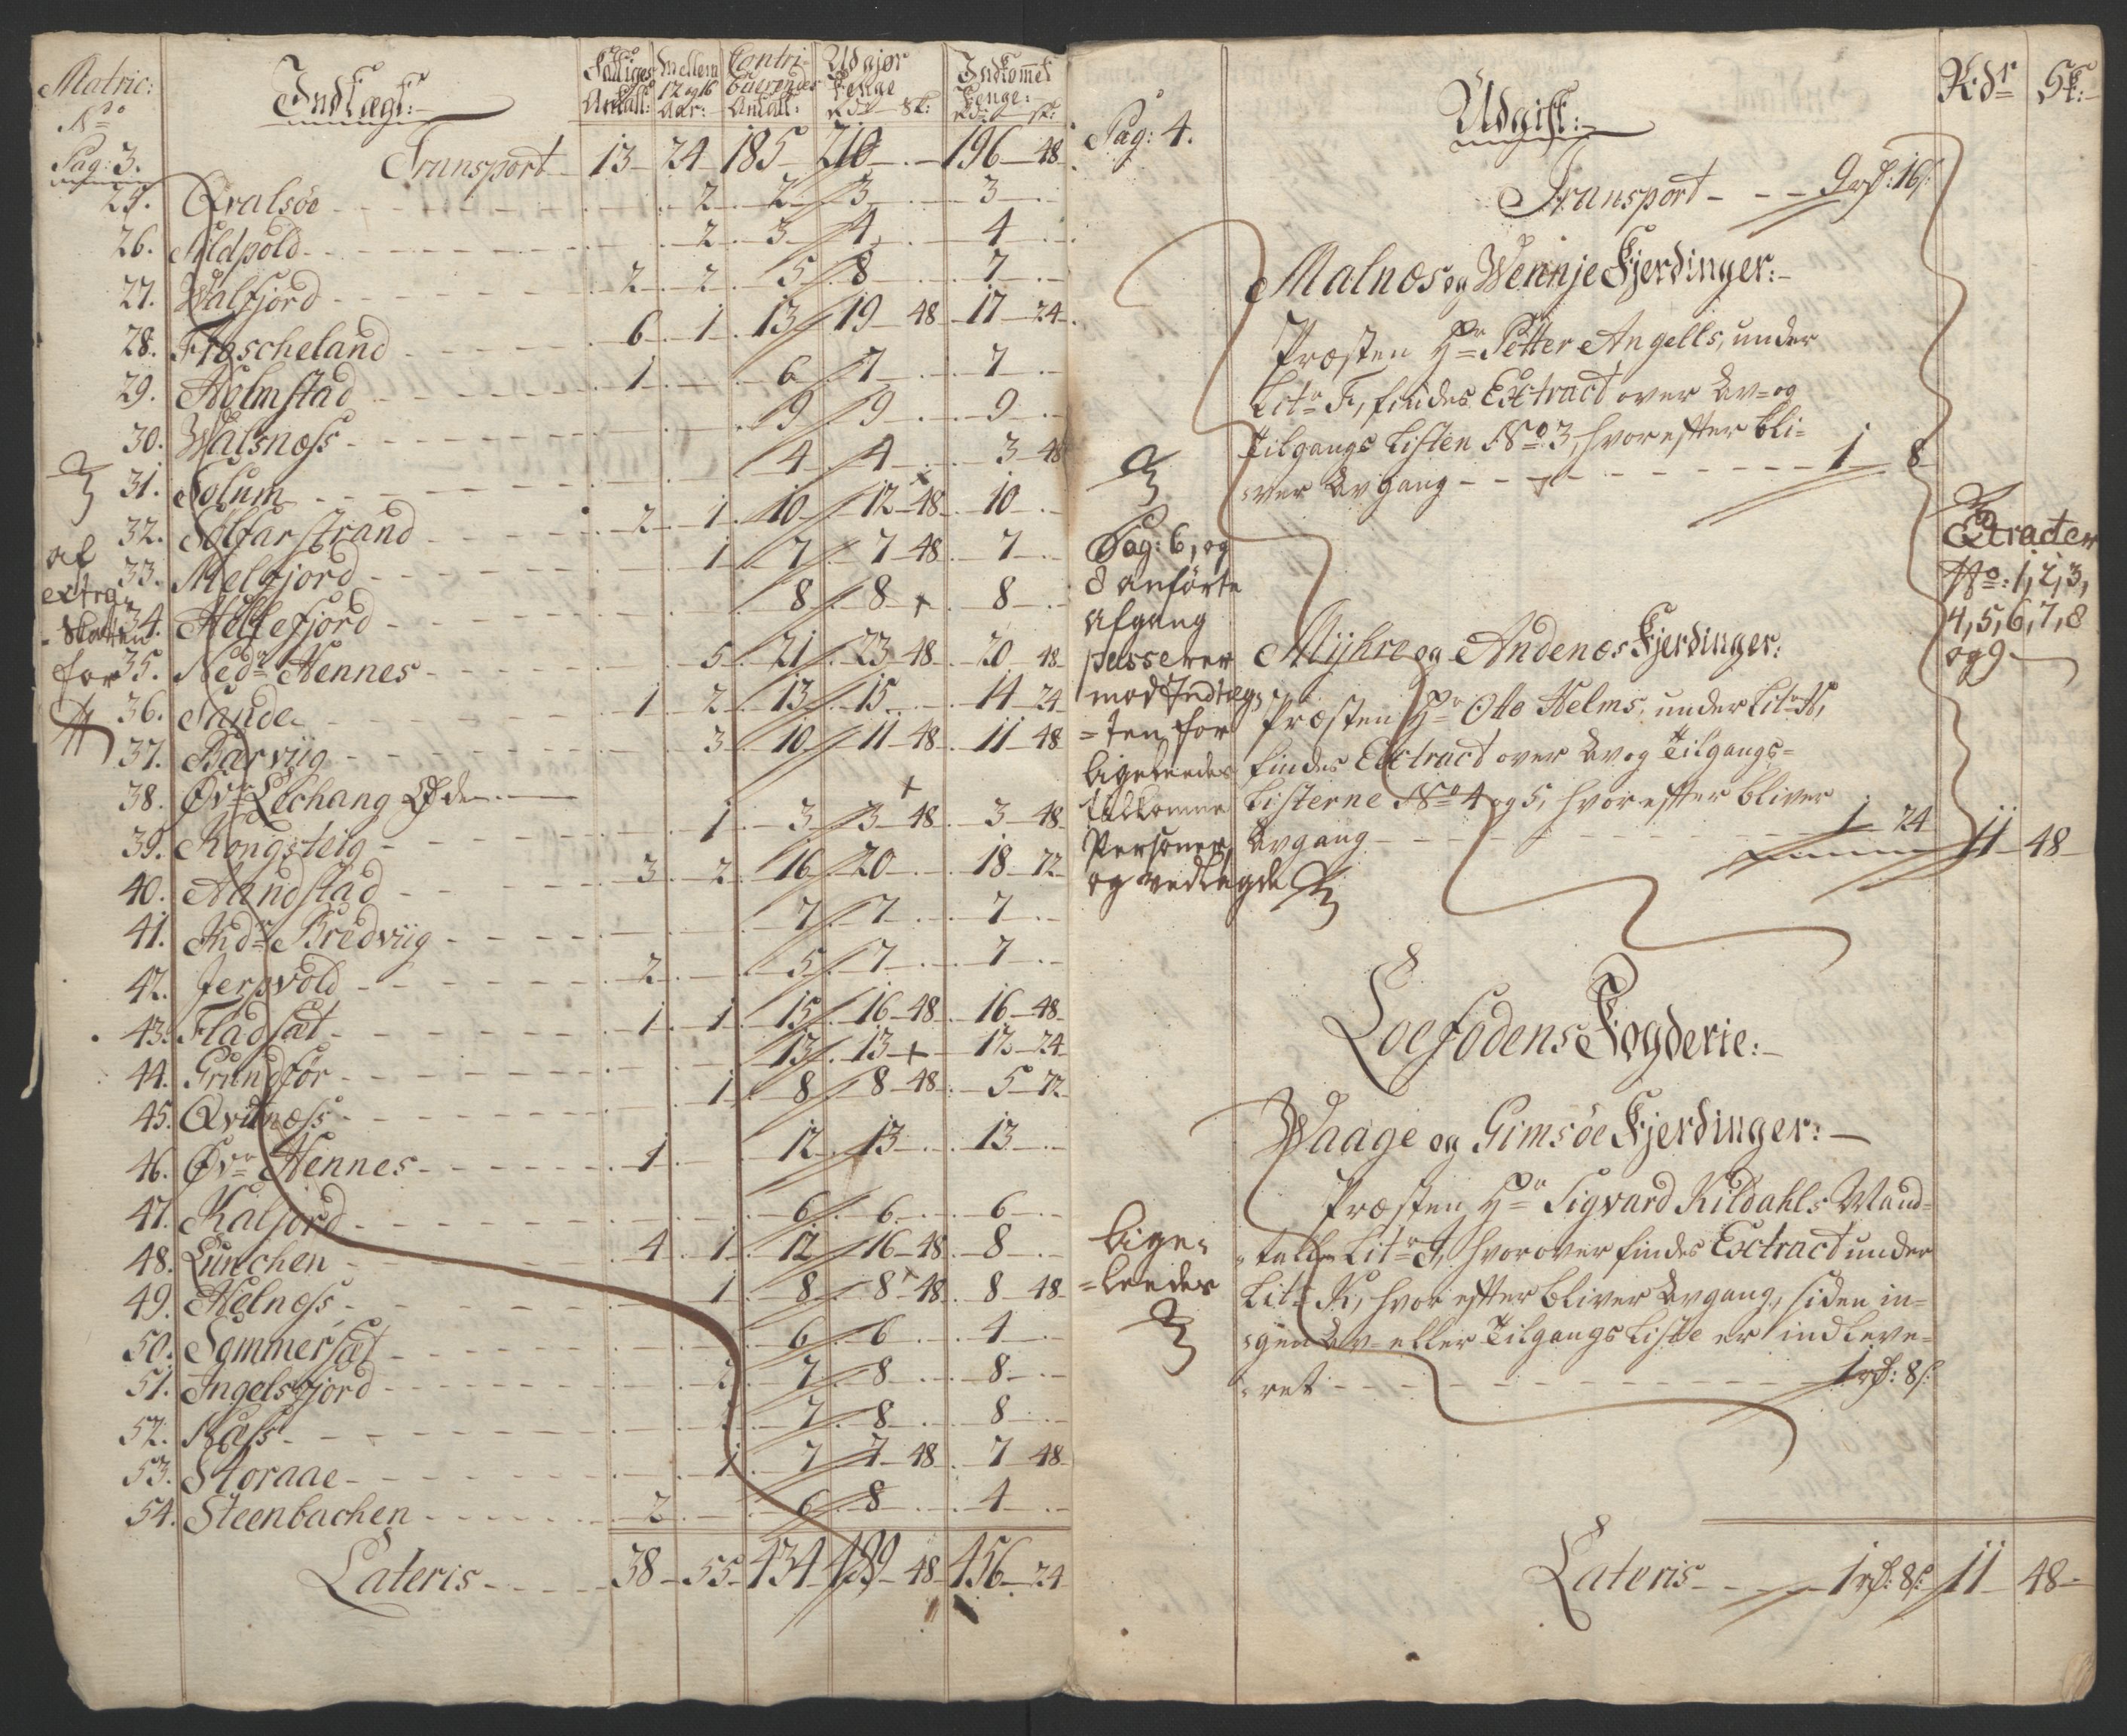 Matric: No
Indtægt:
Fattiges Antall:
mellem 12 og 16 Aar:
Contribuerendes Antall:
Udgiør Penge Rdr Sk:
Indkommet Penge: Rdr sk:
Pag: 3. Transport 13 24 185 210 196 48
25. Qvalsöe - 2 2 3 3
26. Sildpold - 2 3 4 4
27. Walfjord - 2 2 5 8 7
28. Froscheland - 6 1 13 19 48 17 24
29. Holmstad - 1 6 7 7
30. Walsness - 9 9 9
31. Solum - 4 4 3 48
32. Solfarstrand - 2 1 10 12 48 10
33. Melfjord - 1 7 7 48 7
34. Helfefjord - 8 8 8
35. Nedr Hennes - 5 21 23 48 20 48
36. Sande - 1 2 13 15 14 24
37. Barviig - 3 10 11 48 11 48
38. Øvr Lechang Øde
39. Kongsteig - 1 3 3 48 3 48
40. Aandstad - 3 2 16 20 18 72
41. Indr Bredviig - 7 7 7
42. Jerpvold - 2 5 7 7
43. Fladsæt - 1 1 15 16 48 16 48
44. Grundför - 13 13 12 24
45. Qvitness - 1 8 8 48 5 72
46. Øvr Hennes - 1 12 13 13
47. Kalfjord - 6 6 6
48. Lunchen - 4 1 12 16 48 8
49. Helness - 1 8 8 48 8 48
50. Sommersæt - 6 6 4
51. Ingelsfjord - 2 7 8 8
52. Næss - 7 8 8
53. Storaae - 1 7 7 48 7 48
54. Steenbachen - 2 6 8 4
Lateris - 38 55 434 489 48 456 24
af
extra
Skatten
for
Pag: 4.
Udgift:
Rdr Sk:
Transport - - 9 rd: 16 s:
Malnæs og Wennje Fjerdinger:
Præsten Hr Petter Angells, under
Litr F, findes Extract over Av= og
Tilgangs Listen No 3, hvorefter bli=
=ver Avgang - - - 1 8
Pag: 6, og
8 anförte
Afgang
passerer
mod Indtæg=
=ten for
ligeledes
tilkomne
Personer
og vedlagde
Extracter
No: 1, 2, 3,
4, 5, 6, 7, 8
og 9
Myhre og Andenæs Fjerdinger:
Præsten Hr Otto Helms, under Litr H,
findes Extract over Av og Tilgangs=
Listerne No 4 og 5, hvorefter bliver
Avgang - - - 1 24 11 48
Loefodens Fogderie:
Waage og Gimsöe Fjerdinger:
Præsten Hr Sigvard Kildahls Mand=
=tall Litr I, hvorover findes Extract under
Litr K, hvorefter bliver Avgang, siden in=
=gen Av= eller Tilgangs Liste er indleve=
=ret - - - 1 rd: 8 s:
lige=
=leedes
Lateris - - 1 rd: 8 s: 11 48